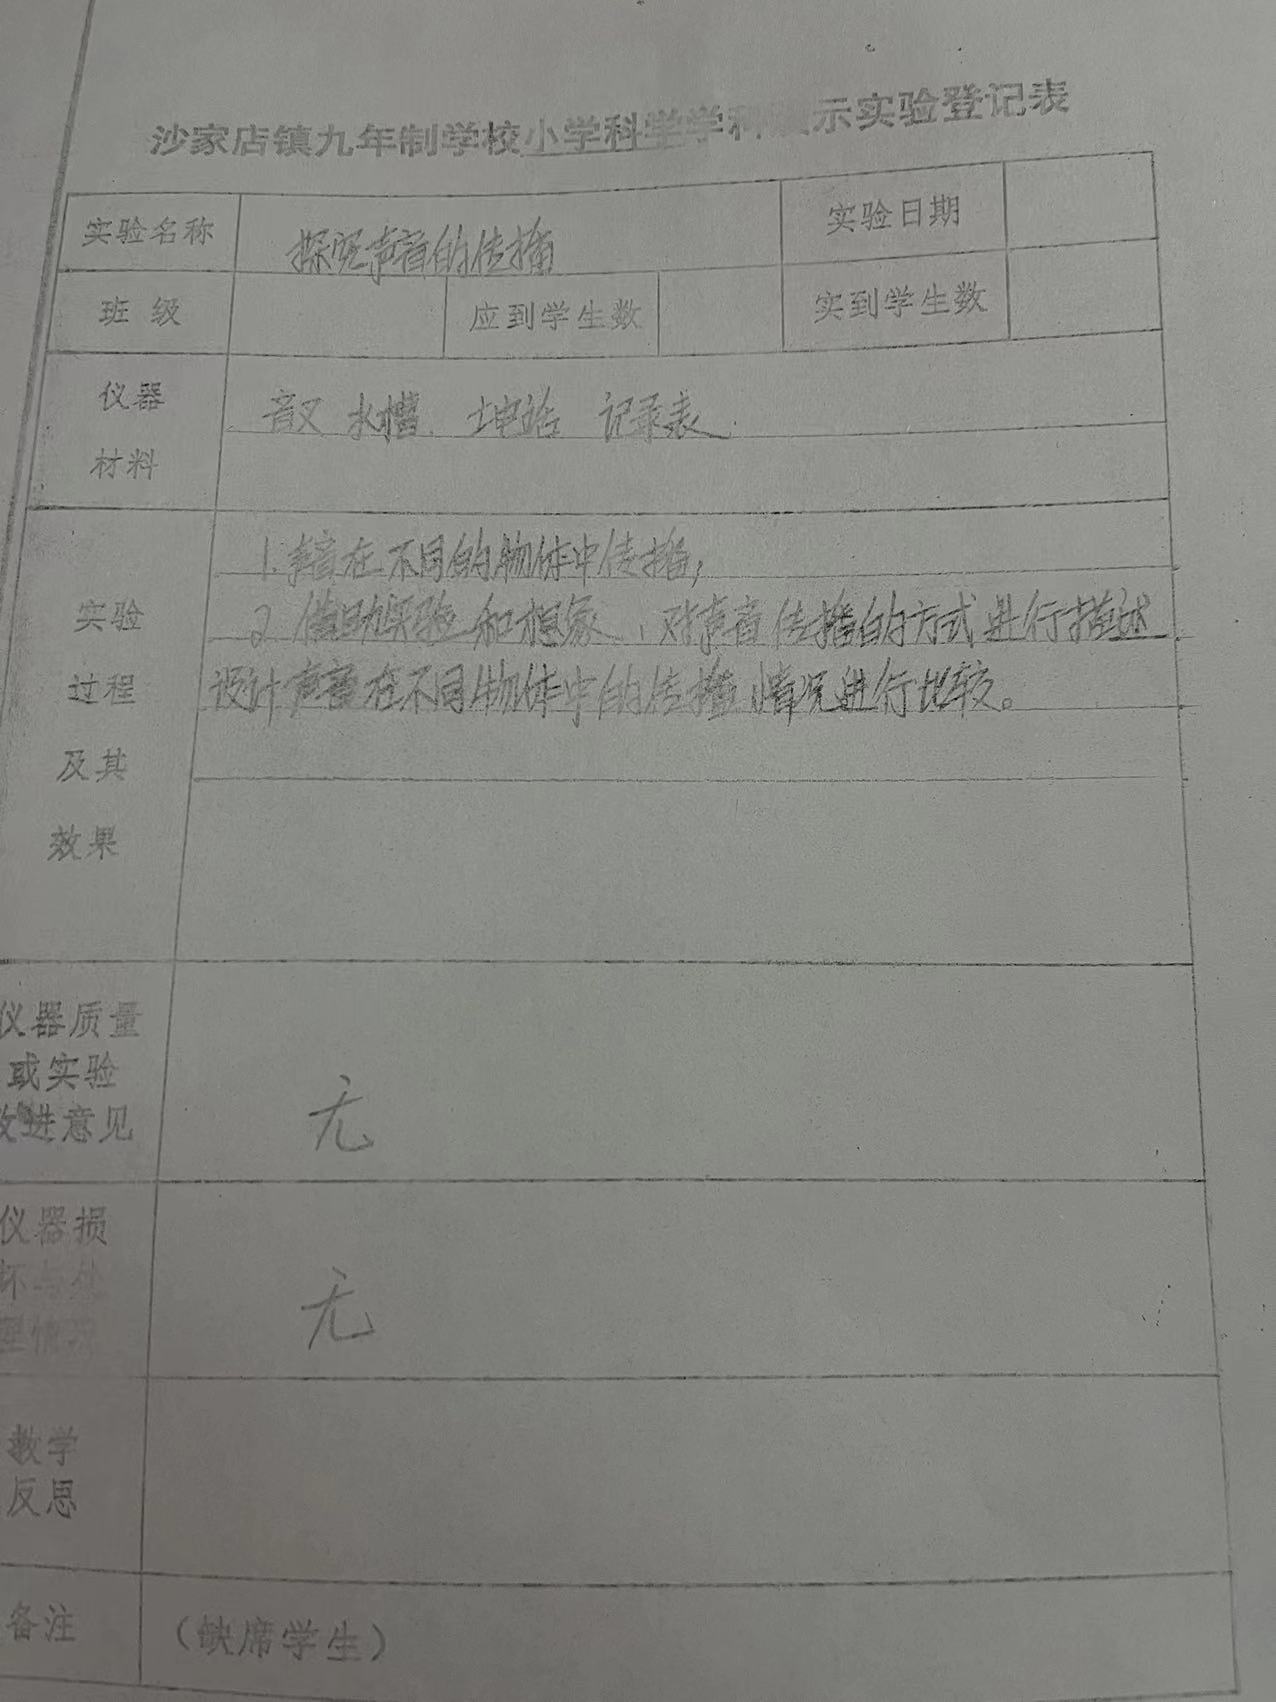 沙家店镇九年制学校小学科学学科演示实验登记表
实验名称 探究声音的传播 实验日期
班 级 应到学生数 实到学生数
仪器 音叉 水槽 记录表
材料
1.声音在不同的物体中传播;
实验 2 借助实验和想象、对声音传播的方式进行描述
过程 设计声音在不同物体中的传播情况进行比较。
及其
效果
仪器质量
或实验
改进意见 无
仪器损
坏与处 无
理情况
教学
反思
备注 (缺席学生)